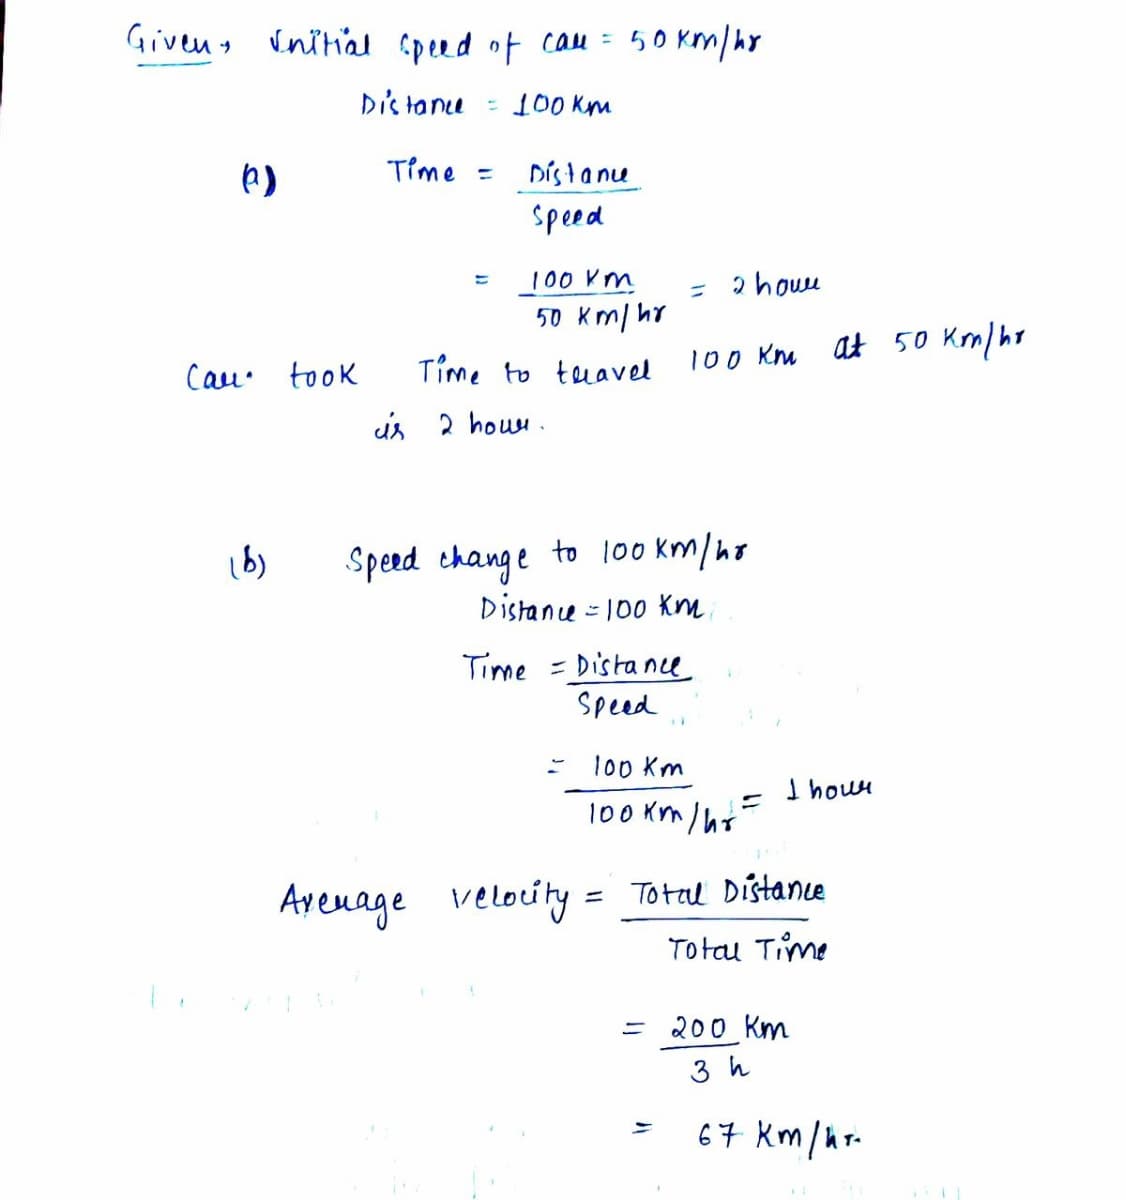 Given, Initial speed of car = 50 Km/hr
Distance = 100 Km
(a) Time = Distance / Speed
= 100 Km / 50 Km/hr = 2 hour
Car took Time to travel 100 Km at 50 Km/hr
is 2 hour.
(b) Speed change to 100 Km/hr
Distance = 100 Km
Time = Distance / Speed
= 100 Km / 100 Km/hr = 1 hour
Average velocity = Total Distance / Total Time
= 200 Km / 3 h
= 67 Km/hr